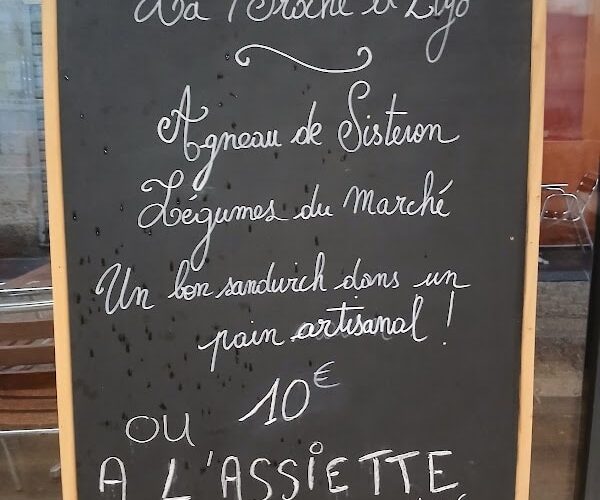 La Broche à Zigo
Agneau de Sisteron
Légumes du Marché
Un bon sandwich dans un
pain artisanal !
10€
OU
A L'ASSIETTE